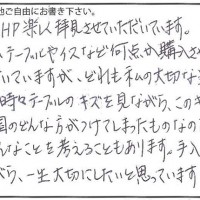 他ご自由にお書き下さい。
HP 楽しく拝見させていただいています。
テーブルやイスなど何点か購入さ
ていますが、どれも私の大切な
時々テーブルのキズを見ながら、このキ
国のどんな方がつけてしまったものなの
なことを考えることもあります。手入
がら、一生大切にしたいと思っています